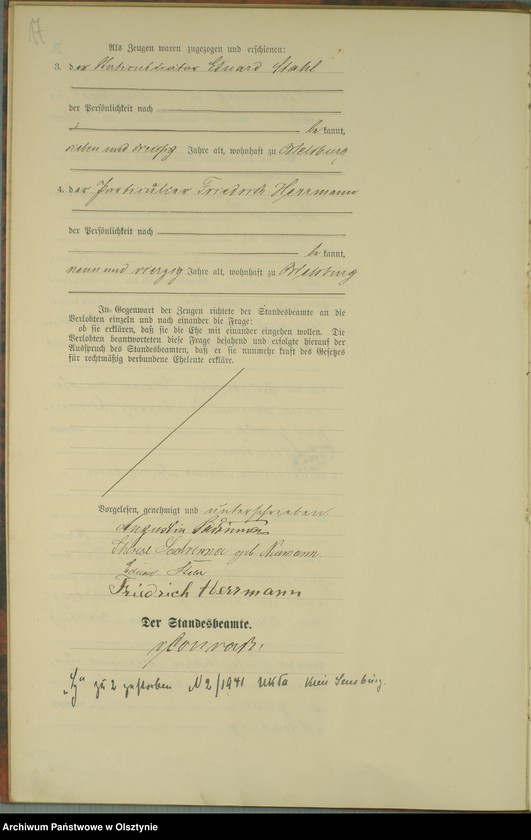 17
Als Zeugen waren zugezogen und erschienen:
3. der Eduard Stahl
der Persönlichkeit nach
be kannt,
sieben und dreißig Jahre alt, wohnhaft zu Ortelsburg
4. der Partikulier Friedrich Herrmann
der Persönlichkeit nach
be kannt,
neun und vierzig Jahre alt, wohnhaft zu Ortelsburg
In Gegenwart der Zeugen richtete der Standesbeamte an die
Verlobten einzeln und nach einander die Frage:
ob sie erklären, daß sie die Ehe mit einander eingehen wollen. Die
Verlobten beantworteten diese Frage bejahend und erfolgte hierauf der
Ausspruch des Standesbeamten, daß er sie nunmehr kraft des Gesetzes
für rechtmäßig verbundene Eheleute erkläre.
Vorgelesen, genehmigt und unterschrieben
Augustin
geb. Neumann
Eduard Stahl
Friedrich Herrmann
Der Standesbeamte.
zu 2 gestorben N 2/1941 Kreis Sensburg.
Archiwum Państwowe w Olsztynie